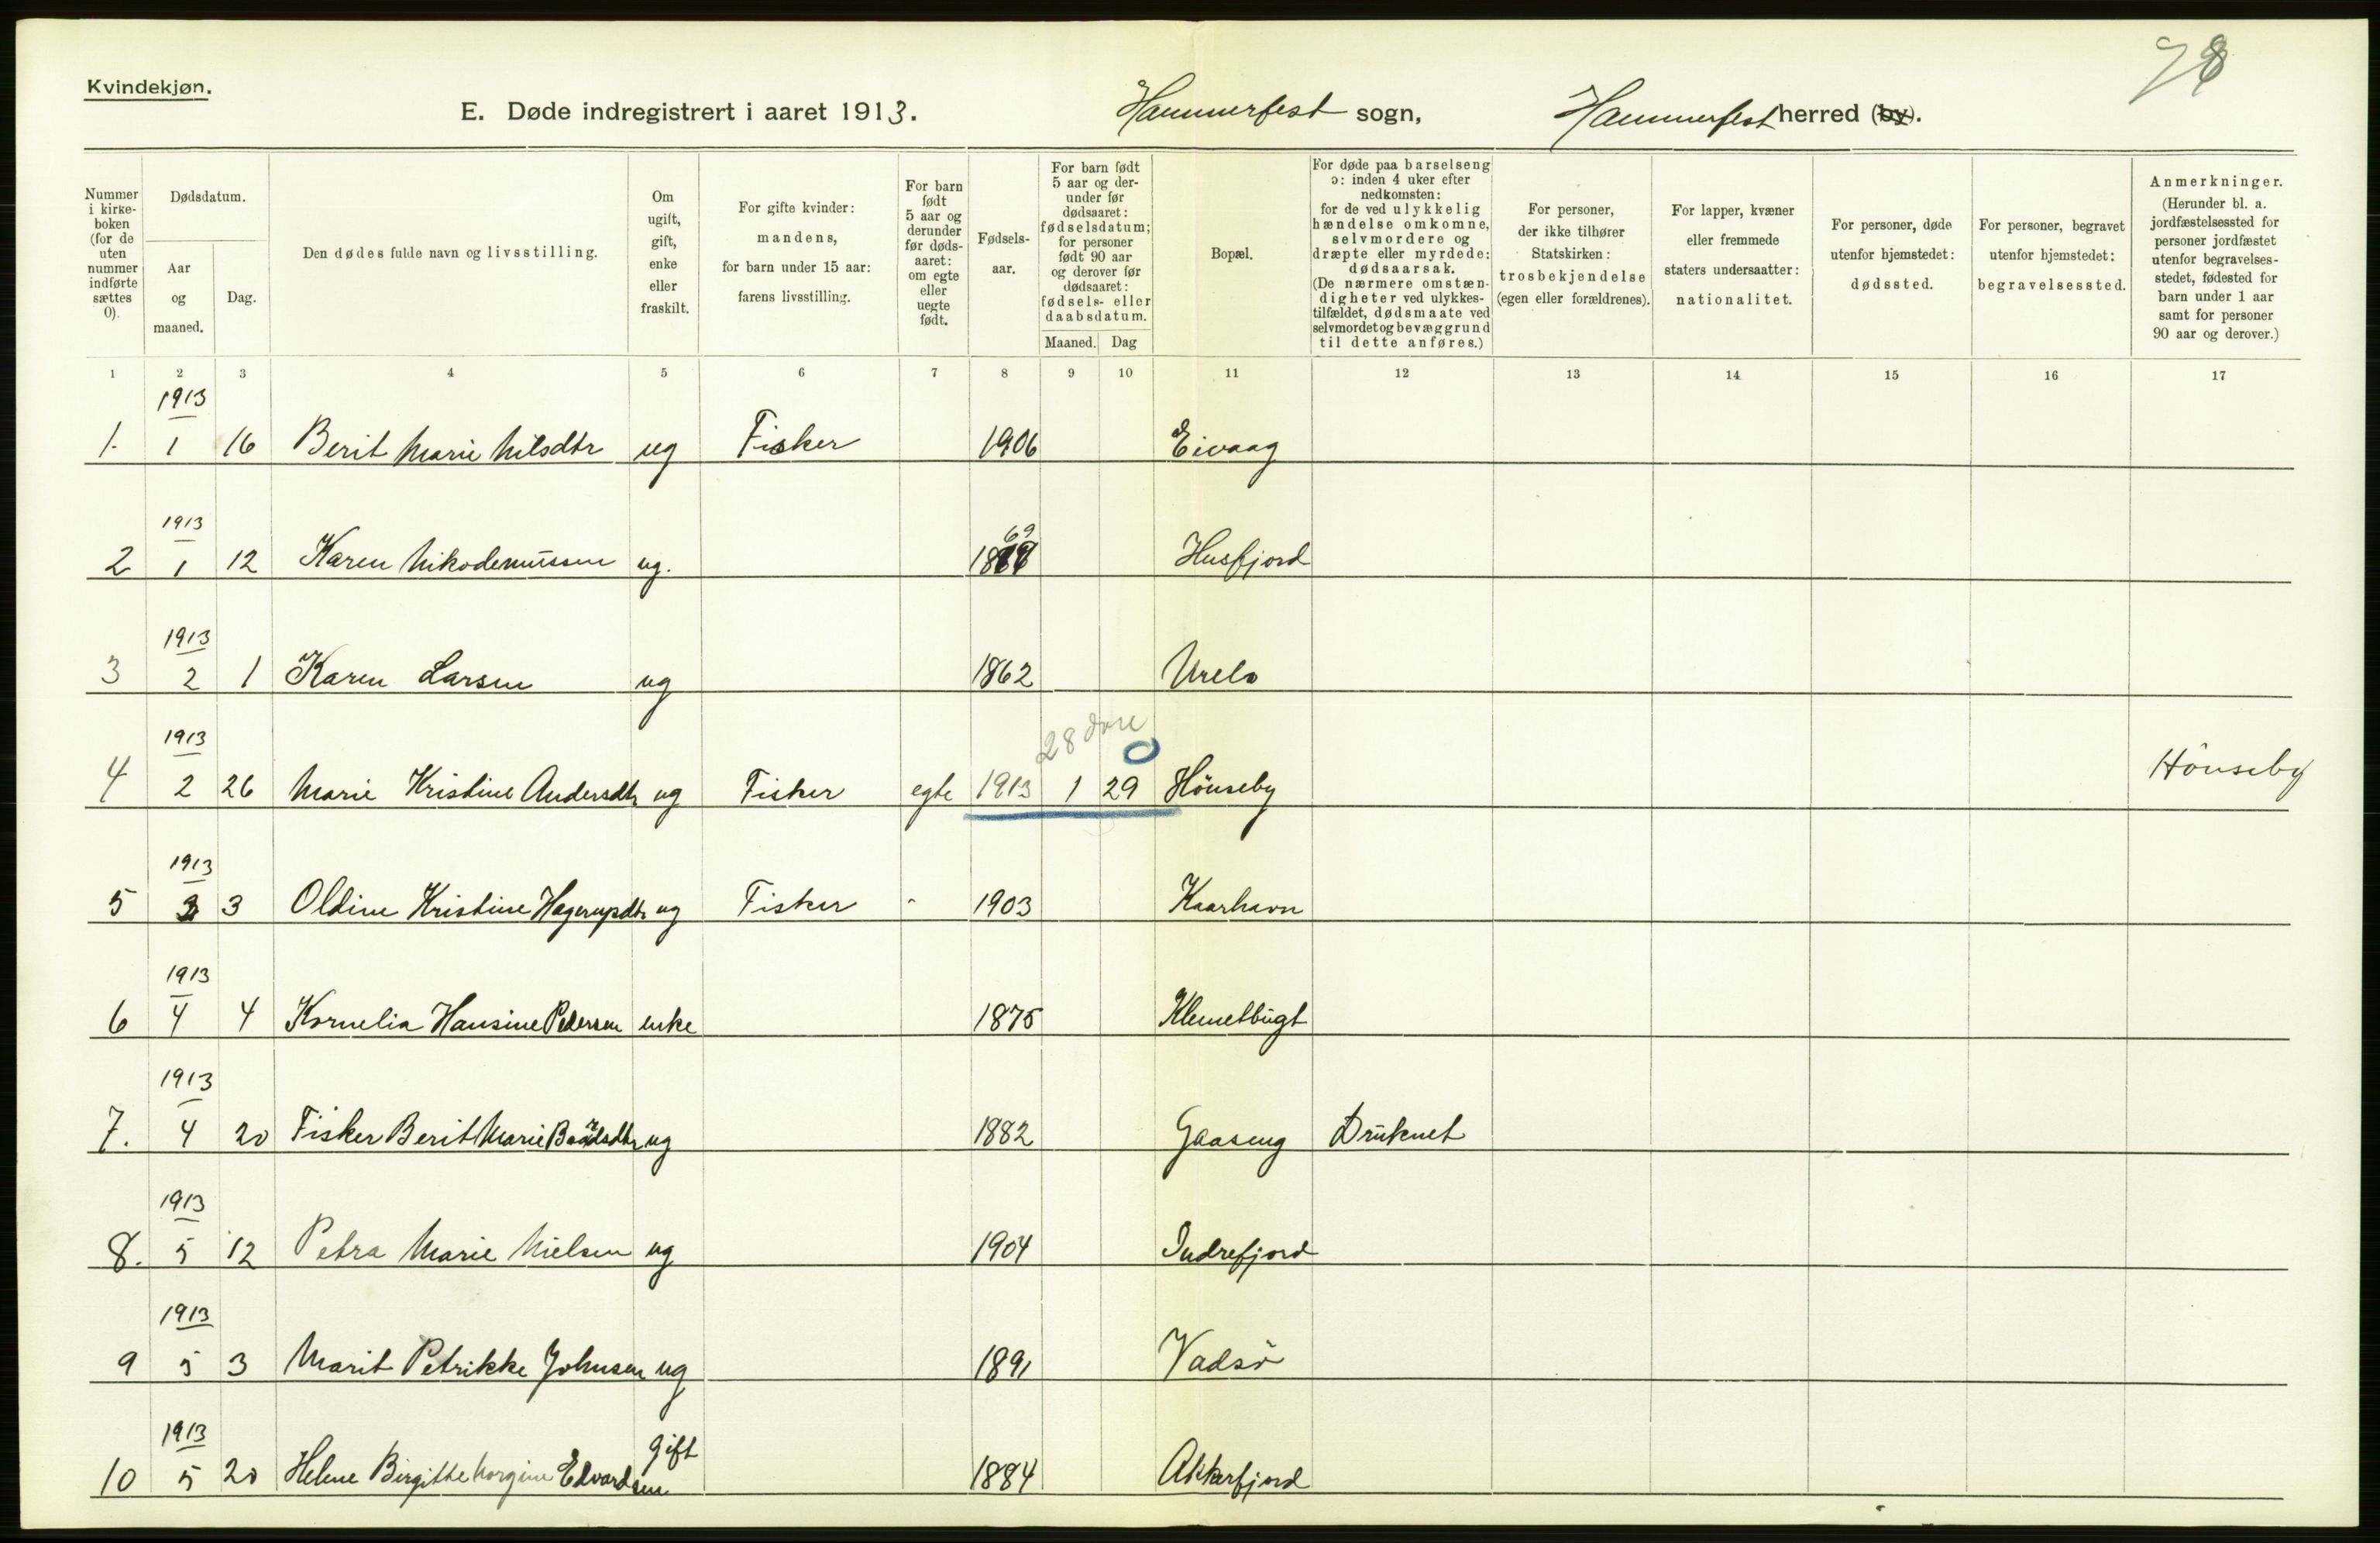 78
Kvindekjøn.
E. Døde indregistrert i aaret 1913. Hammerfest sogn, Hammerfest herred (by).
Nummer i kirkeboken (for de uten nummer indførte sættes 0).
Dødsdatum.
Aar og maaned.
Dag.
Den dødes fulde navn og livsstilling.
Om ugift, gift, enke eller fraskilt.
For gifte kvinder: mandens, for barn under 15 aar: farens livsstilling.
For barn født 5 aar og derunder før dødsaaret: om egte eller uegte født.
Fødselsaar.
For barn født 5 aar og derunder før dødsaaret: fødselsdatum; for personer født 90 aar og derover før dødsaaret: fødsels- eller daabsdatum.
Maaned. Dag
Bopæl.
For døde paa barselseng ɔ: inden 4 uker efter nedkomsten: for de ved ulykkelig hændelse omkomne, selvmordere og dræpte eller myrdede: dødsaarsak. (De nærmere omstændigheter ved ulykkestilfældet, dødsmaate ved selvmordet og bevæggrund til dette anføres.)
For personer, der ikke tilhører Statskirken: trosbekjendelse (egen eller forældrenes).
For lapper, kvæner eller fremmede staters undersaatter: nationalitet.
For personer, døde utenfor hjemstedet: dødssted.
For personer, begravet utenfor hjemstedet: begravelsessted.
Anmerkninger. (Herunder bl. a. jordfæstelsessted for personer jordfæstet utenfor begravelsesstedet, fødested for barn under 1 aar samt for personer 90 aar og derover.)
1 2 3 4 5 6 7 8 9 10 11 12 13 14 15 16 17
1913
1. 1 16 Berit Marie Nilsdtr ug Fisker 1906 Eivaag
1913
69
2 1 12 Karen Nikodemussen ug. Husfjord
1913
3 2 1 Karen Larsen ug 1862 Urelo
1913
28
0
4 2 26 Marie Kristine Andersdtr ug Fisker egte 1913 1 29 Hönseby Hönseby
1913
5 3 3 Oldine Kristine Hagerupdtr ug Fisker - 1903 Kaarhavn
1913
6 4 4 Kornelia Hansine Pedersen enke 1875 Klemetbugt
1913
7. 4 20 Fisker Berit Marie ug 1882 Gaaseng Druknet
1913
8. 5 12 Petra Marie Nielsen ug 1904 Indrefjord
1913
9 5 3 Marit Petrikke Johnsen ug 1891 Vadsö
1913
10 5 20 Helene Birgitte Norgine Edvardsen gift 1884 Akkarfjord